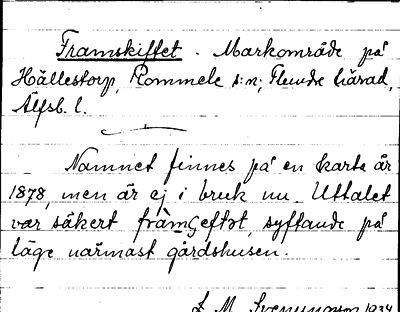 Framskiffet. Markområde på
Hällestorp, Rommele s:n; Flundre härad,
Älfsb. l.
Namnet finnes på en karta år
1878, men är ej i bruk nu. Uttalet
var säkert syftande på
läge närmast gårdshusen.
L. M. Svenungsson 1934